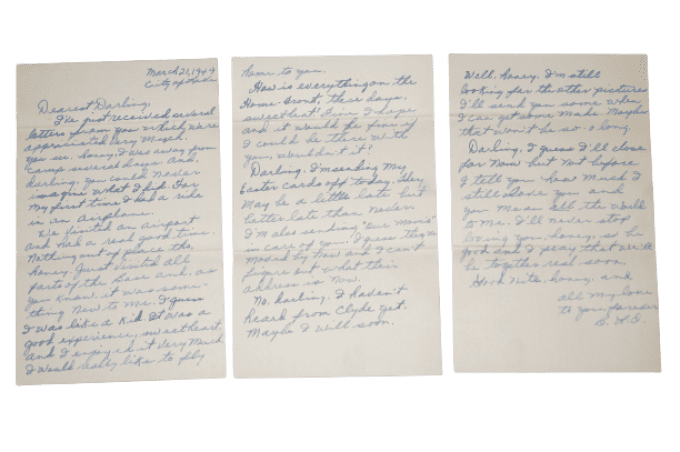 March 21, 1944
Dearest Darling,
I've just received several
letters from you which were
appreciated very much.
You see, honey, I was away from
camp several days. And,
darling, you could never
imagine what I did. For
my first time I had a ride
in an airplane.
We visited an airport
and had a real good time.
Nothing out of place tho,
honey. Just visited all
parts of the base and, as
you know, it was some-
thing new to me. I guess
I was like a kid. It was a
good experience, sweetheart,
and I enjoyed it very much
I would really like to fly
home to you.
How is everything on the
Home-front, these days,
sweetheart? Fine I hope
and it would be fine if
I could be there with
you, wouldn't it?
Darling, I'm sending my
Easter cards off today. They
may be a little late but
better late than never.
I'm also sending "Sue
in care of you. I guess they've
moved by now and I can't
figure out what their
address is now.
No, darling, I haven't
heard from Clyde yet.
Maybe I will soon.
Well, honey, I'm still
looking for the other pictures
I'll send you some when
I can get some made. Maybe
that won't be so long.
Darling, I guess I'll close
for now but not before
I tell you how much I
still love you and
you mean all the world
to me. I'll never stop
loving you, honey, so be
good and I pray that we'll
be together real soon.
Good nite, honey, and
all my love
to you forever